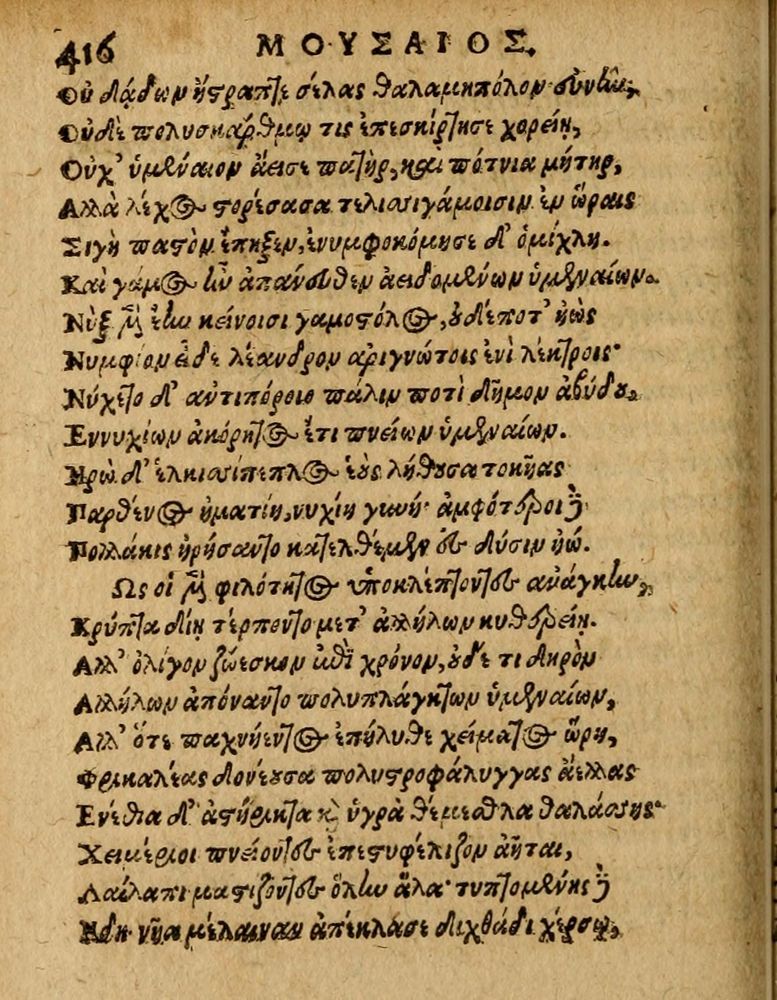 416 ΜΟΥΣΑΙΟΣ.
Οὐ δᾴδων ἤστραπτε σέλας θαλαμηπόλον εὐνὴν,
Οὐδὲ πολυσκάρθμῳ τις ἐπεσκίρτησε χορείῃ,
Οὐχ' ὑμέναιον ἄεισε πατὴρ, καὶ πότνια μήτηρ,
Αλλὰ λέχος στορέσασα τελεσσιγάμοισιν ἐν ὥραις
Σιγὴ παστὸν ἔπηξεν, ἐνυμφοκόμησε δ' ὁμίχλη.
Καὶ γάμος ἦν ἀπάνευθεν ἀειδομένων ὑμεναίων.
Νὺξ μὲν ἔην κείνοισι γαμοστόλος, οὐδέποτ' ἠὼς
Νυμφίον εἶδε λέανδρον ἀριγνώτοις ἐνὶ λέκτροις·
Νήχετο δ' αὐτιπόροιο πάλιν ποτὶ δῆμον ἀβύδου,
Εννυχίων ἀκόρητος ἔτι πνείων ὑμεναίων.
Ηρὼ δ' ἑλκεσίπεπλος ἑοὺς λήθουσα τοκῆας
Παρθένος ἠματίη, νυχίη γυνή· ἀμφότεροι δὲ
Πολλάκις ἠρήσαντο κατελθέμεν ἐς δύσιν ἠῶ.
Ως οἱ μὲν φιλότητος ὑποκλέπτοντες ἀνάγκην,
Κρύπτα δίῃ τέρποντο μετ' ἀλλήλων κυθερείῃ.
Αλλ' ὀλίγον ζώεσκον ἐπὶ χρόνον, οὐδέ τι δηρὸν
Αλλήλων ἀπόναντο πολυπλάγκτων ὑμεναίων,
Αλλ' ὅτε παχνήεντος ἐπήλυθε χείματος ὥρη,
Φρικαλέας δονέουσα πολυστροφάλυγγας ἀέλλας
Βένθεα δ' ἀστήρικτα καὶ ὑγρὰ θέμεθλα θαλάσσης·
Χειμέριοι πνείοντες ἐπεστυφέλιζον ἀῆται,
Λαίλαπι μαστίζοντες ὅλην ἅλα· τυπτομένης δὲ
Ηδη νῆα μέλαιναν ἀπέκλασε διχθάδι χέρσῳ,